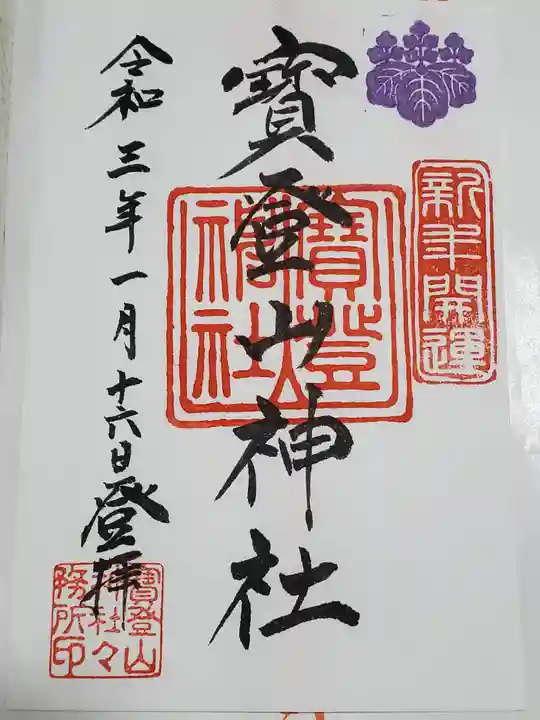 新年開運
寳登山神社
寳登山神社
令和三年一月十六日登拝
寳登山神社々務所印